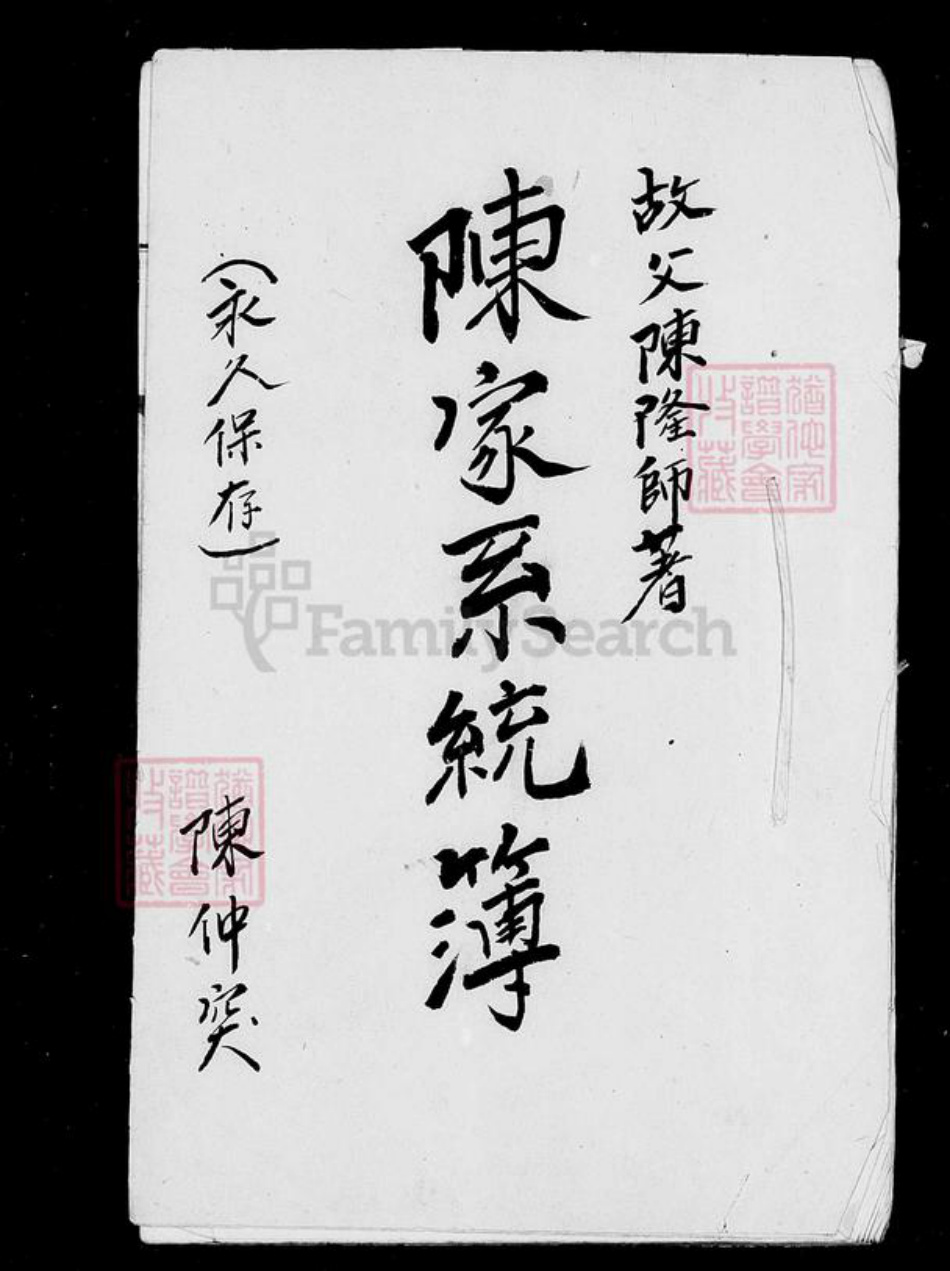 故父陳隆師著
陳家系統簿
(永久保存)
陳仲突
猶他家
譜學會
收藏
猶他家
譜學會
收藏
FamilySearch